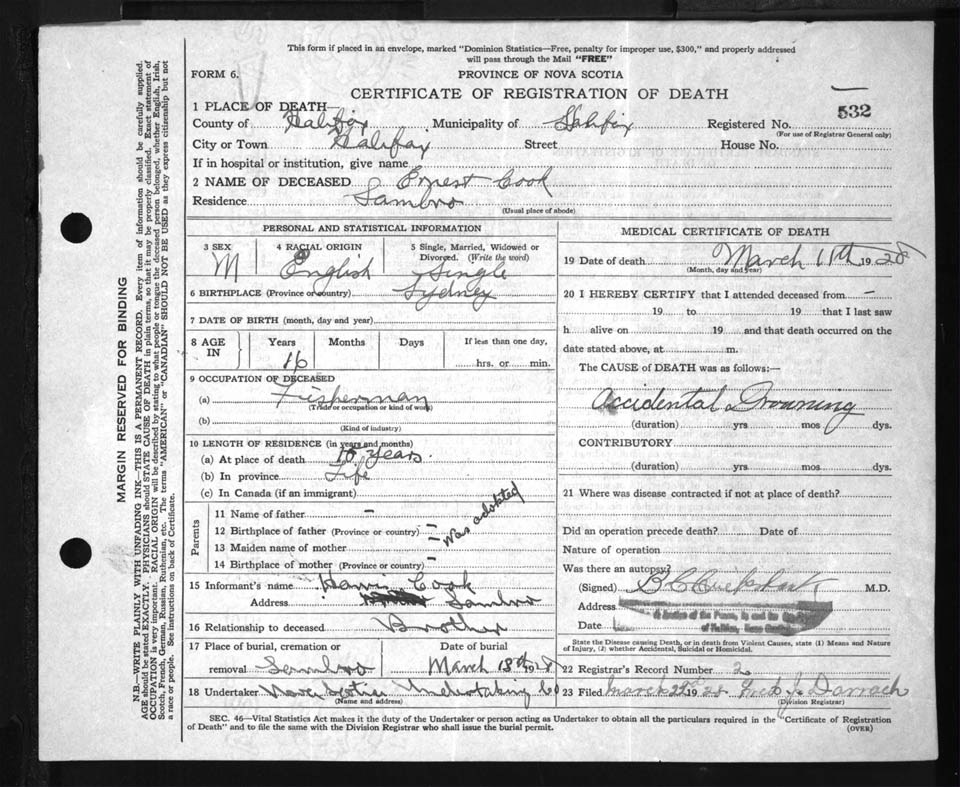 This form if placed in an envelope, marked "Dominion Statistics—Free, penalty for improper use, $300," and properly addressed
will pass through the Mail "FREE"
FORM 6.
PROVINCE OF NOVA SCOTIA
CERTIFICATE OF REGISTRATION OF DEATH
532
1 PLACE OF DEATH—
County of Halifax Municipality of Halifax Registered No.
(For use of Registrar General only)
City or Town Halifax Street House No.
If in hospital or institution, give name
2 NAME OF DECEASED Ernest Cook
Residence Sambro
(Usual place of abode)
PERSONAL AND STATISTICAL INFORMATION
3 SEX 4 RACIAL ORIGIN 5 Single, Married, Widowed or
Divorced. (Write the word)
M English Single
6 BIRTHPLACE (Province or country) Sydney
7 DATE OF BIRTH (month, day and year)
8 AGE IN Years Months Days If less than one day,
16 hrs. or min.
9 OCCUPATION OF DECEASED
(a) Fisherman
(Trade or occupation or kind of work)
(b)
(Kind of industry)
10 LENGTH OF RESIDENCE (in years and months)
(a) At place of death years
(b) In province Life
(c) In Canada (if an immigrant)
Parents
11 Name of father –
12 Birthplace of father (Province or country) –
13 Maiden name of mother –
14 Birthplace of mother (Province or country) –
Was adopted
15 Informant's name Cook
Address Sambro
16 Relationship to deceased Brother
17 Place of burial, cremation or Date of burial
removal Sambro March 13th 1928
18 Undertaker Nova Scotia Undertaking Co
(Name and address)
MEDICAL CERTIFICATE OF DEATH
19 Date of death March 11th 1928
(Month, day and year)
20 I HEREBY CERTIFY that I attended deceased from –
19 to 19 that I last saw
h alive on 19 and that death occurred on
date stated above, at m.
The CAUSE of DEATH was as follows:—
Accidental Drowning
(duration) yrs mos dys.
CONTRIBUTORY
(duration) yrs mos dys.
21 Where was disease contracted if not at place of death?
Did an operation precede death? Date of
Nature of operation
Was there an autopsy?
(Signed) M.D.
Address
Date
State the Disease causing Death, or in death from Violent Causes, state (1) Means and Nature
of Injury, (2) whether Accidental, Suicidal or Homicidal.
22 Registrar's Record Number 2
23 Filed March 22nd 1928 Fred J. Darrach
(Division Registrar)
SEC. 46—Vital Statistics Act makes it the duty of the Undertaker or person acting as Undertaker to obtain all the particulars required in the "Certificate of Registration
of Death" and to file the same with the Division Registrar who shall issue the burial permit.
(OVER)
MARGIN RESERVED FOR BINDING
N.B.—WRITE PLAINLY WITH UNFADING INK—THIS IS A PERMANENT RECORD. Every item of information should be carefully supplied.
AGE should be stated EXACTLY. PHYSICIANS should STATE CAUSE OF DEATH in plain terms, so that it may be properly classified. Exact statement of
OCCUPATION is very important. RACIAL ORIGIN will be described by stating to what people or tongue the deceased person belonged, whether English, Irish,
Scotch, French, German, Russian, Ruthenian, etc. The terms "AMERICAN" or "CANADIAN" SHOULD NOT BE USED as they express citizenship but not
a race or people. See instructions on back of Certificate.